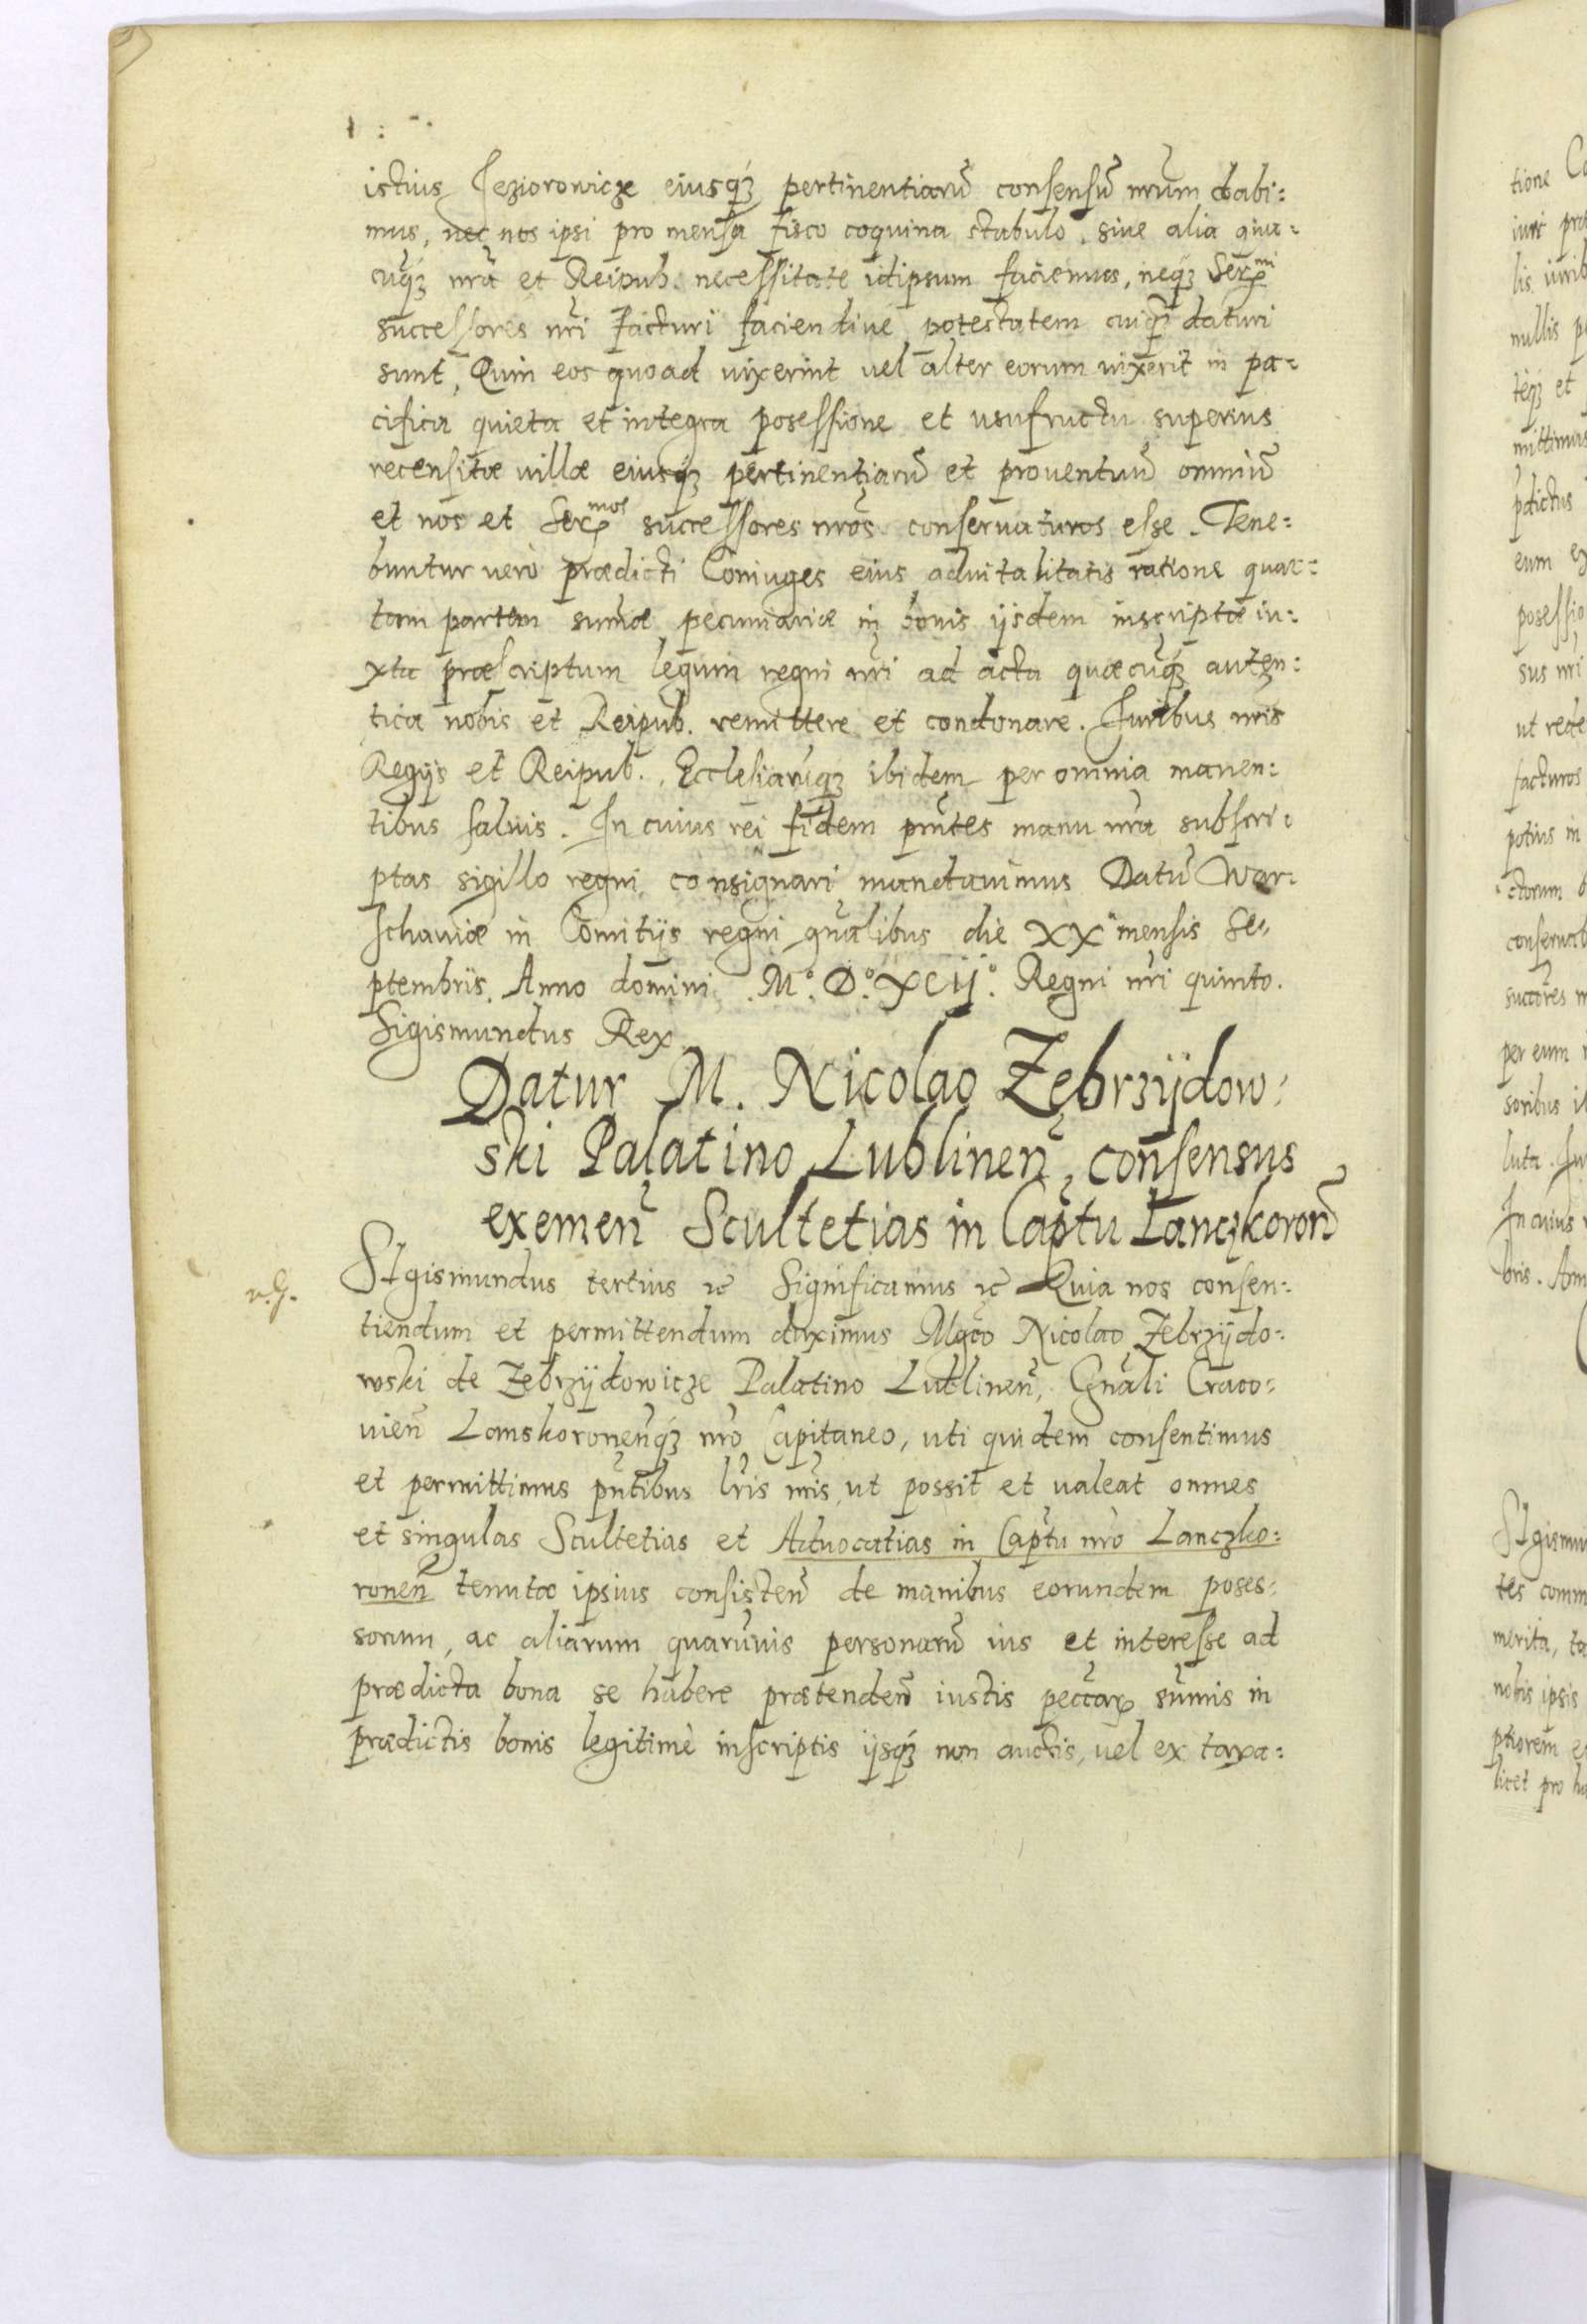 istius Jeziorowicze eiusq́ꝫ pertinentiarū consensū nr̄um dabi:
mus, nec nos ipsi pro mensa fisco coquina stabulo, siue alia qua:
cuq́ꝫ nr̄a et Reipub. necessitate idipsum faciemus, neq́ꝫ Ser.mi
successores nr̄i facturi faciendiue potestatem cuiq̄ꝫ daturi
sunt, Quin eos quoad uixerint uel alter eorum uixerit in pa:
cifica quieta et integra posessione et usufructu superius
recensitæ villæ eiusq́ꝫ pertinentiarū et prouentuū omniū
et nos et Ser.mos successores nr̄os conseruaturos esse. Tene:
buntur verò prædicti Coniuges eius aduitalitatis ratione quar:
tam partem sum̄æ pecuniariæ in bonis ijsdem inscriptæ iu:
xta præscriptum legum regni nr̄i ad acta quæcuq́ꝫ auten:
tica nobis et Reipub. remittere et condonare. Juribus nr̄is
Regijs et Reipub. Ecclesiarūq́ꝫ ibidem per omnia manen:
tibus saluis. In cuius rei fidem pn̄tes manu nr̄a subscri:
ptas sigillo regni consignari mandauimus Datū War:
schauiæ in Comitijs regni gn̄alibus die XX mensis Se:
ptembris. Anno domini M.º D.º XCIJ.º Regni nr̄i quinto.
Sigismundus Rex
Datur M. Nicolao Zebrzÿdow:
ski Palatino Lublinen̄, consensus
exemen̄ Scultetias in Cap̄tu Lanczkoron̄
v.g. SIgismundus tertius ꝛc̄ Significamus ꝛc̄ Quia nos consen:
tiendum et permittendum duximus Mḡco Nicolao Zebrzÿdo:
wski de Zebrzÿdowicze Palatino Lublinen̄, Gn̄ali Craco:
uien̄ Lanskoronen̄q́ꝫ nr̄o Capitaneo, uti quidem consentimus
et permittimus pn̄tibus lr̄is nr̄is, ut possit et ualeat omnes
et singulas Scultetias et Aduocatias in Cap̄tu nr̄o Lanczko:
ronen̄ tenutæ ipsius consisten̄ de manibus eorundem poses:
sorum, ac aliarum quarūuis personarū ius et interesse ad
prædicta bona se habere prætenden̄ iustis pecc̄ar. sum̄is in
prædictis bonis legitimè inscriptis ijsq́ꝫ non auctis, uel ex taxa: